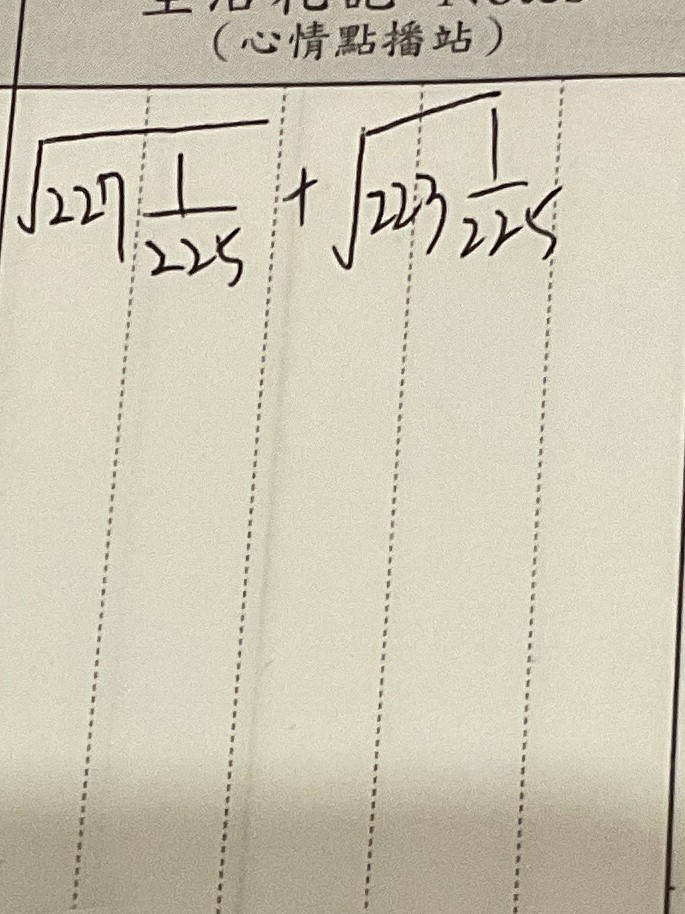 (心情點播站)
√(227 1/225) + √(223 1/225)